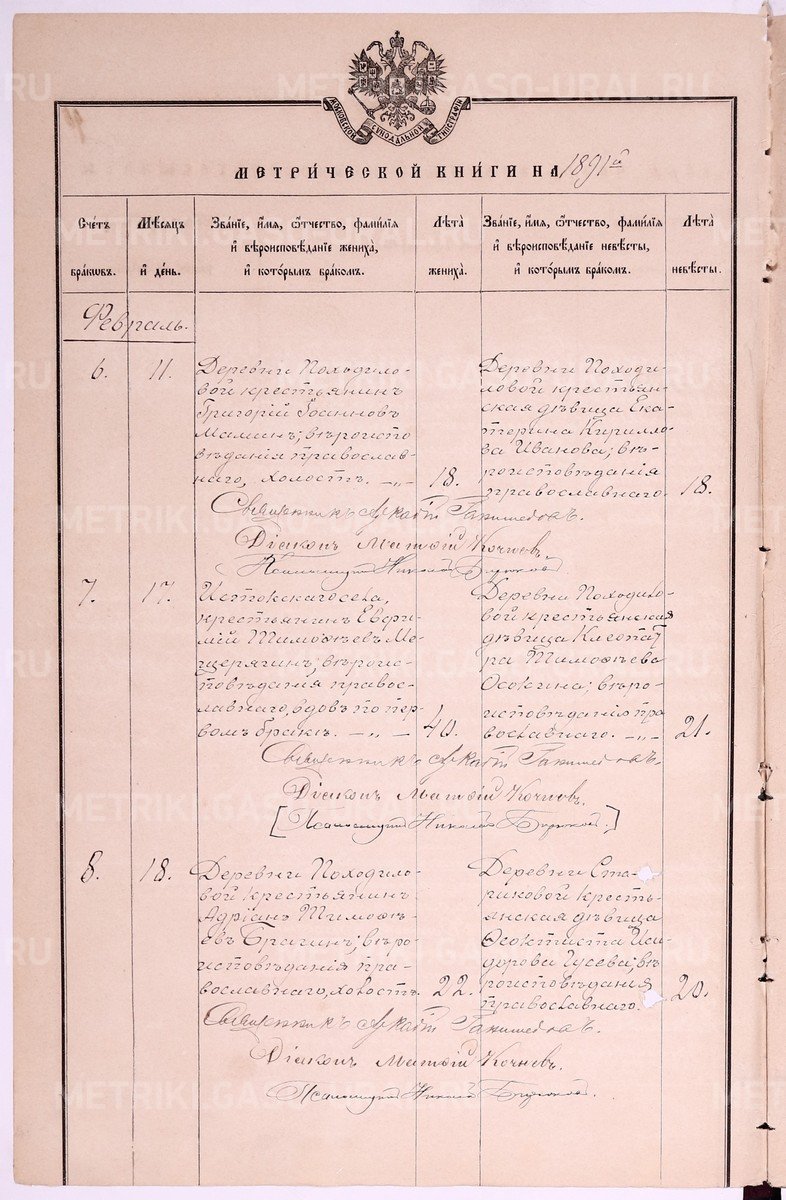 МОСКОВСКОЙ СѴНОДАЛЬНОЙ ТИПОГРАФІИ
МЕТРИ́ЧЕСКОЙ КНИ́ГИ НА 1891й
Сче́тъ бра́кѡвъ.
Мѣ́сяцъ и҆ де́нь.
Зва́нїе, и҆́мѧ, ѻ҆́тчество, фами́лїѧ
и҆ вѣроисповѣ́данїе жениха̀,
и҆ кото́рымъ бра́комъ.
Лѣта̀ жениха̀.
Зва́нїе, и҆́мѧ, ѻ҆́тчество, фами́лїѧ
и҆ вѣроисповѣ́данїе невѣ́сты,
и҆ кото́рымъ бра́комъ.
Лѣта̀ невѣ́сты.
Февраль.
6. 11.
Деревни Походило-
вой крестьянинъ
Григорій Іоанновъ
Маминъ; вѣроиспо
вѣданія православ-
наго, холостъ. -„- 18.
Деревни Походи-
ловой крестьян-
ская дѣвица Ека-
терина Кирилло-
ва Иванова; вѣ-
роисповѣданія
православнаго. 18.
Священникъ Аркадій
Діаконъ Матѳій Кочневъ.
Псаломщикъ Николай Бирюковъ.
7. 17.
Истокскаго села,
крестьянинъ Евфи-
мій Тимоѳеевъ Ме-
щерягинъ; вѣроис-
повѣданія правос-
лавнаго, вдовъ по пер-
вомъ бракѣ. -„- 40.
Деревни Походило-
вой крестьянская
дѣвица Клеопат
ра Тимоѳеева
Осокина; вѣро-
исповѣданія пра
вославнаго. -„- 21.
Священникъ Аркадій
Діаконъ Матѳій Кочневъ.
[Псаломщикъ Николай Бирюковъ.]
8. 18.
Деревни Походило-
вой крестьянинъ
Адріанъ Тимоѳе-
евъ Брагинъ; вѣро-
исповѣданія пра-
вославнаго, холостъ. 22.
Деревни Ста-
риковой кресть-
янская дѣвица
Ѳеоктиста Иси-
дорова Гусева; вѣ
роисповѣданія
православнаго. 20.
Священникъ Аркадій
Діаконъ Матѳій Кочневъ.
Псаломщикъ Николай Бирюковъ.
METRIKI.GASO-URAL.RU